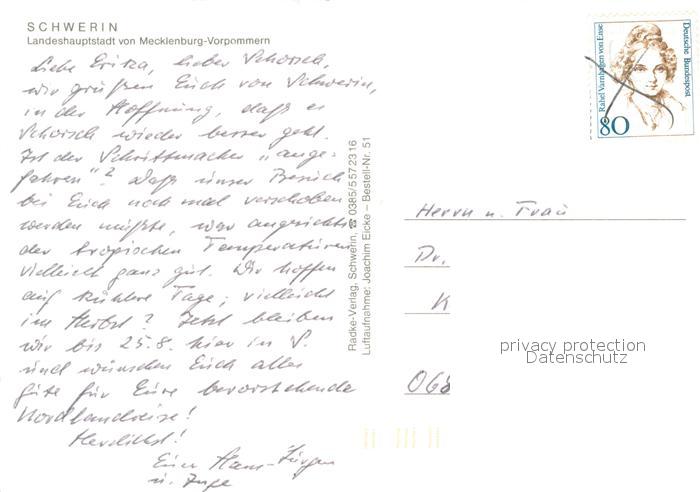 SCHWERIN
Landeshauptstadt von Mecklenburg-Vorpommern
Liebe Erika, lieber Schorsch,
wir grüßen Euch von Schwerin,
in der Hoffnung, daß es
Schorsch wieder besser geht.
Ist der Schrittmacher „ange-
fahren"? Daß unser Besuch
bei Euch noch mal verschoben
werden mußte, war angesichts
der tropischen Temperaturen
vielleicht ganz gut. Wir hoffen
auf kühlere Tage; vielleicht
im Herbst? Jetzt bleiben
wir bis 25.8. hier in S.
und wünschen Euch alles
Gute für Eure bevorstehende
Nordlandreise!
Herzlichst!
Euer Hans-Jürgen
u. Inge
Radke-Verlag, Schwerin, ☎ 0385/5572316
Luftaufnahme: Joachim Eicke – Bestell-Nr. 51
Rahel Varnhagen von Ense
Deutsche Bundespost
80
Herrn u. Frau
Dr.
K
privacy protection
Datenschutz